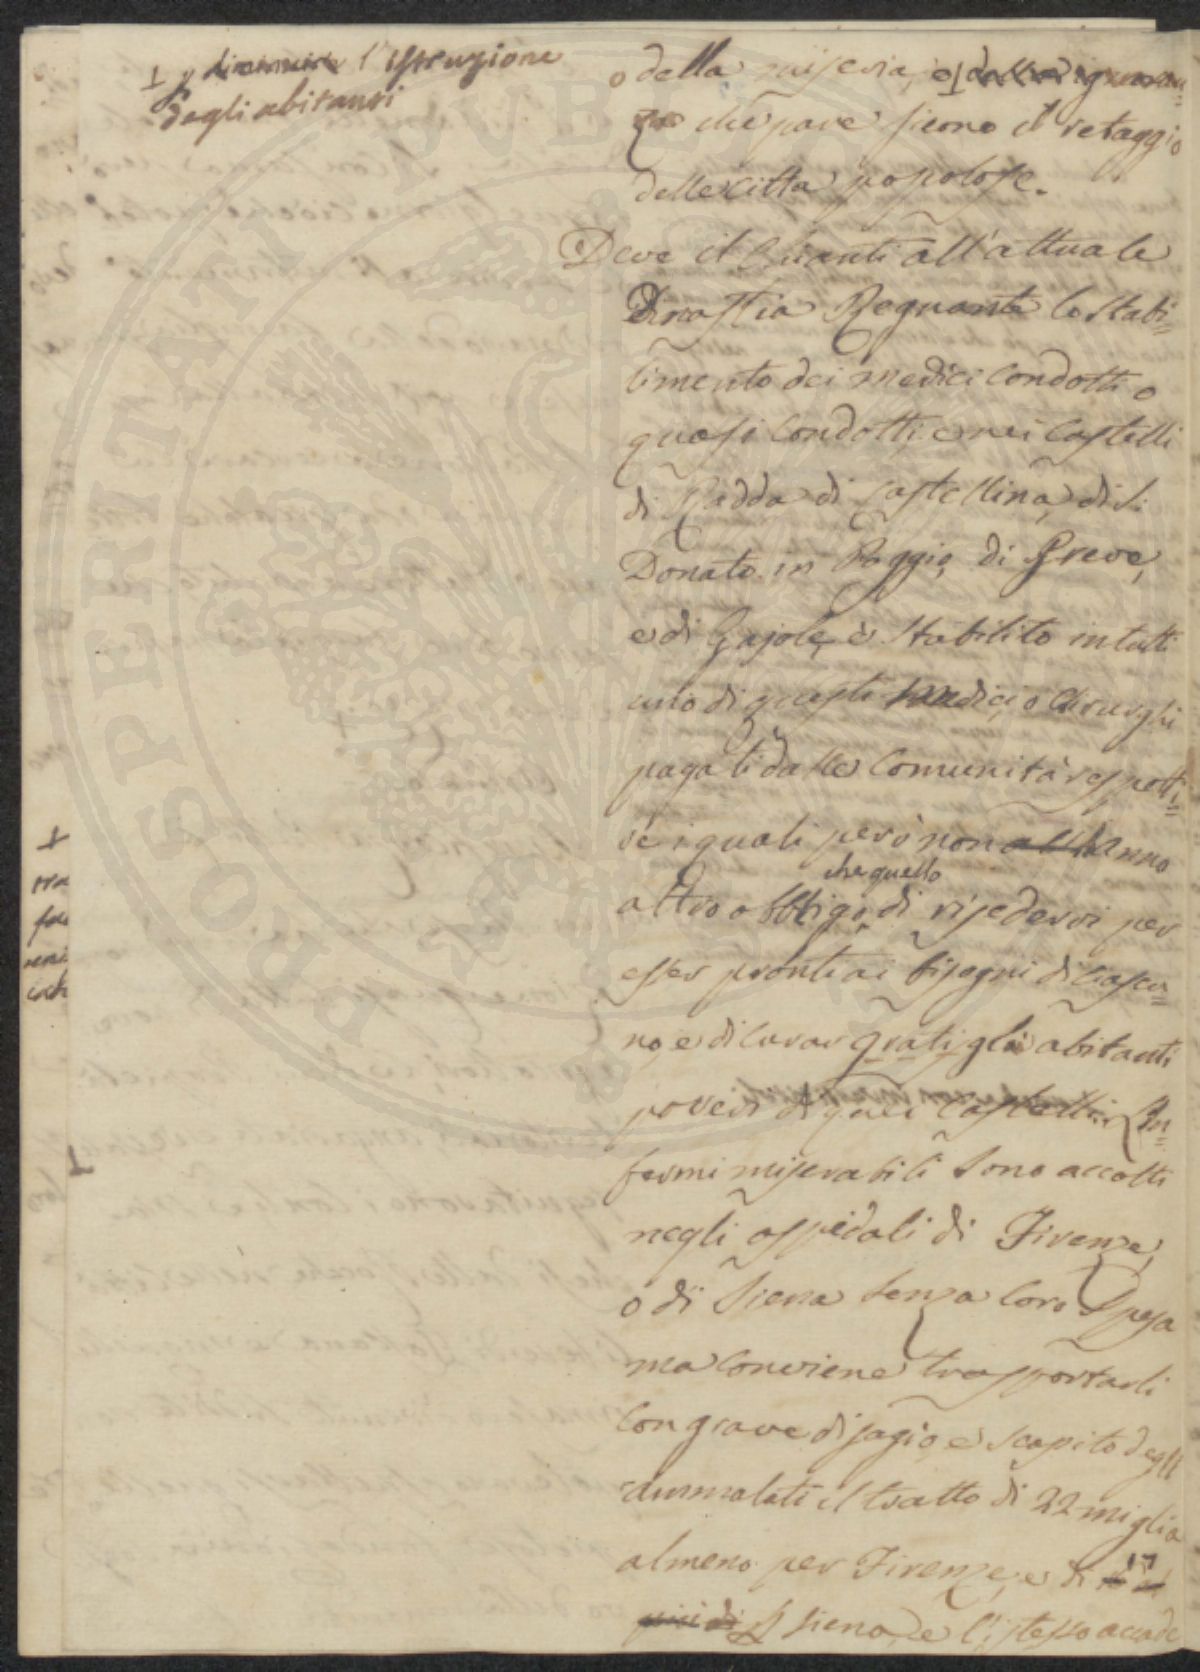 ⊥ p diminuire l'istruzione
degli abitanti
o della miseria, e ⊥ dalla ignoran=
za che pare sieno il retaggio
delle città popolose.
Deve il Chianti all'attuale
Dinastia Regnante lo stabi=
limento dei medici condotti o
quasi condotti, e nei Castelli
di Radda di Castellina, di S.
Donato in Poggio, di Greve,
e di Gajole, è stabilito in tutti
uno di questi medici, o Chirurghi
pagati dalle Comunità respetti=
ve i quali però non hanno
che quello
altro obbligo, di risedervi per
esser pronti ai bisogni di ciascu=
no, e di curar gratis gli abitanti
poveri di quei Castelli. Gl'In=
fermi miserabili sono accolti
negli ospedali di Firenze,
o di Siena senza loro spesa
ma conviene trasportarli
con grave disagio, e scapito degli
ammalati il tratto di 22 miglia
almeno per Firenze, e di 17
più di p Siena, e l'istesso accade
PROSPERITATI PUBLIC